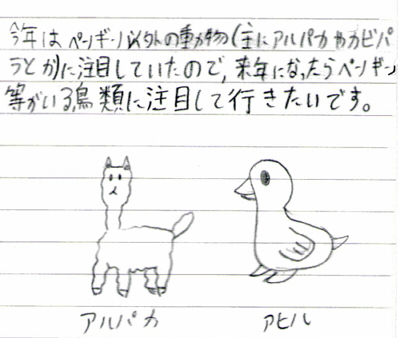 今年はペンギン以外の動物(主にアルパカやカピバ
ラとか)に注目していたので、来年になったらペンギン
等がいる鳥類に注目して行きたいです。
アルパカ アヒル